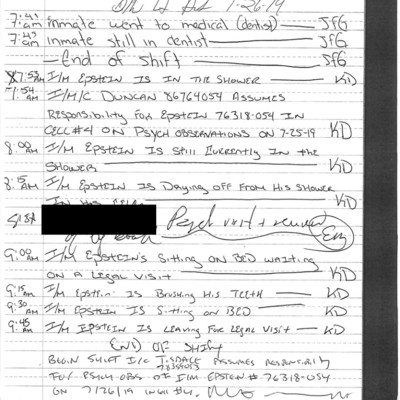 7-26-19
7:41 am inmate went to medical (dentist) JFG
7:43 am inmate still in dentist JFG
End of shift JFG
7:53 AM I/M EPSTEIN IS IN THE SHOWER KD
7:54 AM I/M/C DUNCAN 86764054 ASSUMES
RESPONSIBILITY FOR EPSTEIN 76318-054 IN
CELL #4 ON PSYCH OBSERVATIONS ON 7-25-19 KD
8:00 AM I/M EPSTEIN IS STILL CURRENTLY IN THE
SHOWER KD
8:15 AM I/M EPSTEIN IS DRYING OFF FROM HIS SHOWER
IN HIS KD
Psych visit +
9:00 AM I/M EPSTEIN'S SITTING ON BED WAITING
ON A LEGAL VISIT KD
9:15 AM I/M EPSTEIN IS BRUSHING HIS TEETH KD
9:30 AM I/M EPSTEIN IS SITTING ON BED KD
9:45 AM I/M EPSTEIN IS LEAVING FOR LEGAL VISIT KD
END OF SHIFT
BEGIN SHIFT I/C ASSUMES RESPONSIBILITY
FOR PSYCH OBS OF I/M EPSTEIN # 76318-054
ON 7/26/19 IN #4.